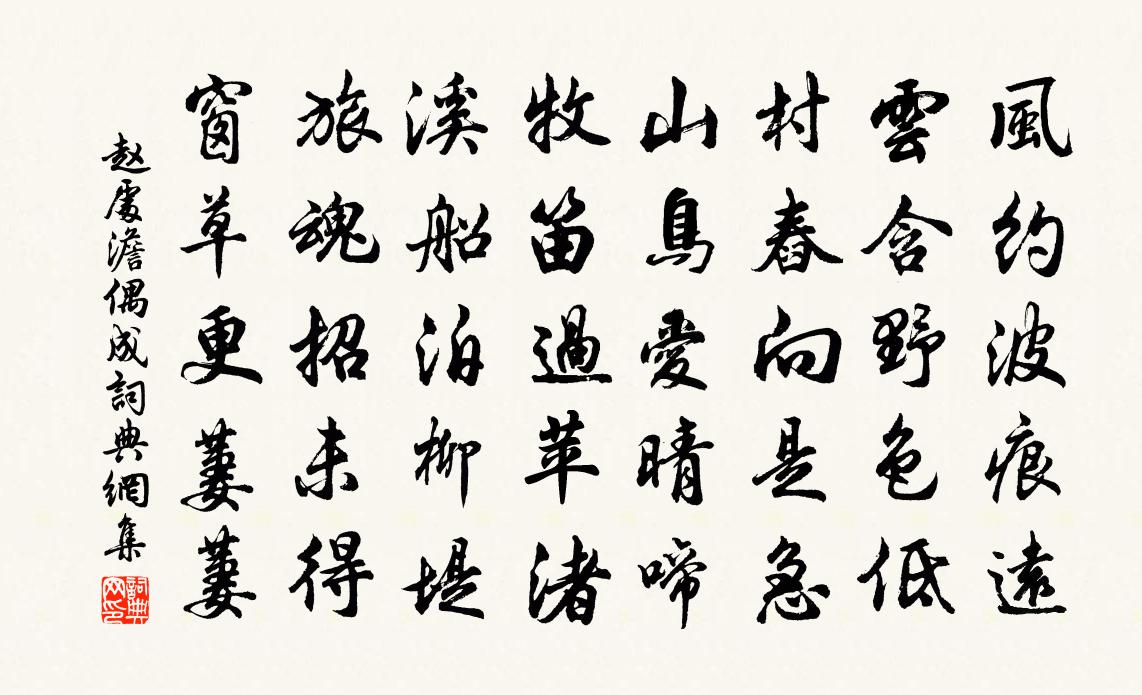 風約波痕遠
雲含野色低
村舂向是急
山鳥愛晴啼
牧笛過苹渚
溪船泊柳堤
旅魂招未得
窗草更萋萋
赵處澹偶成詞典網集
詞典網印